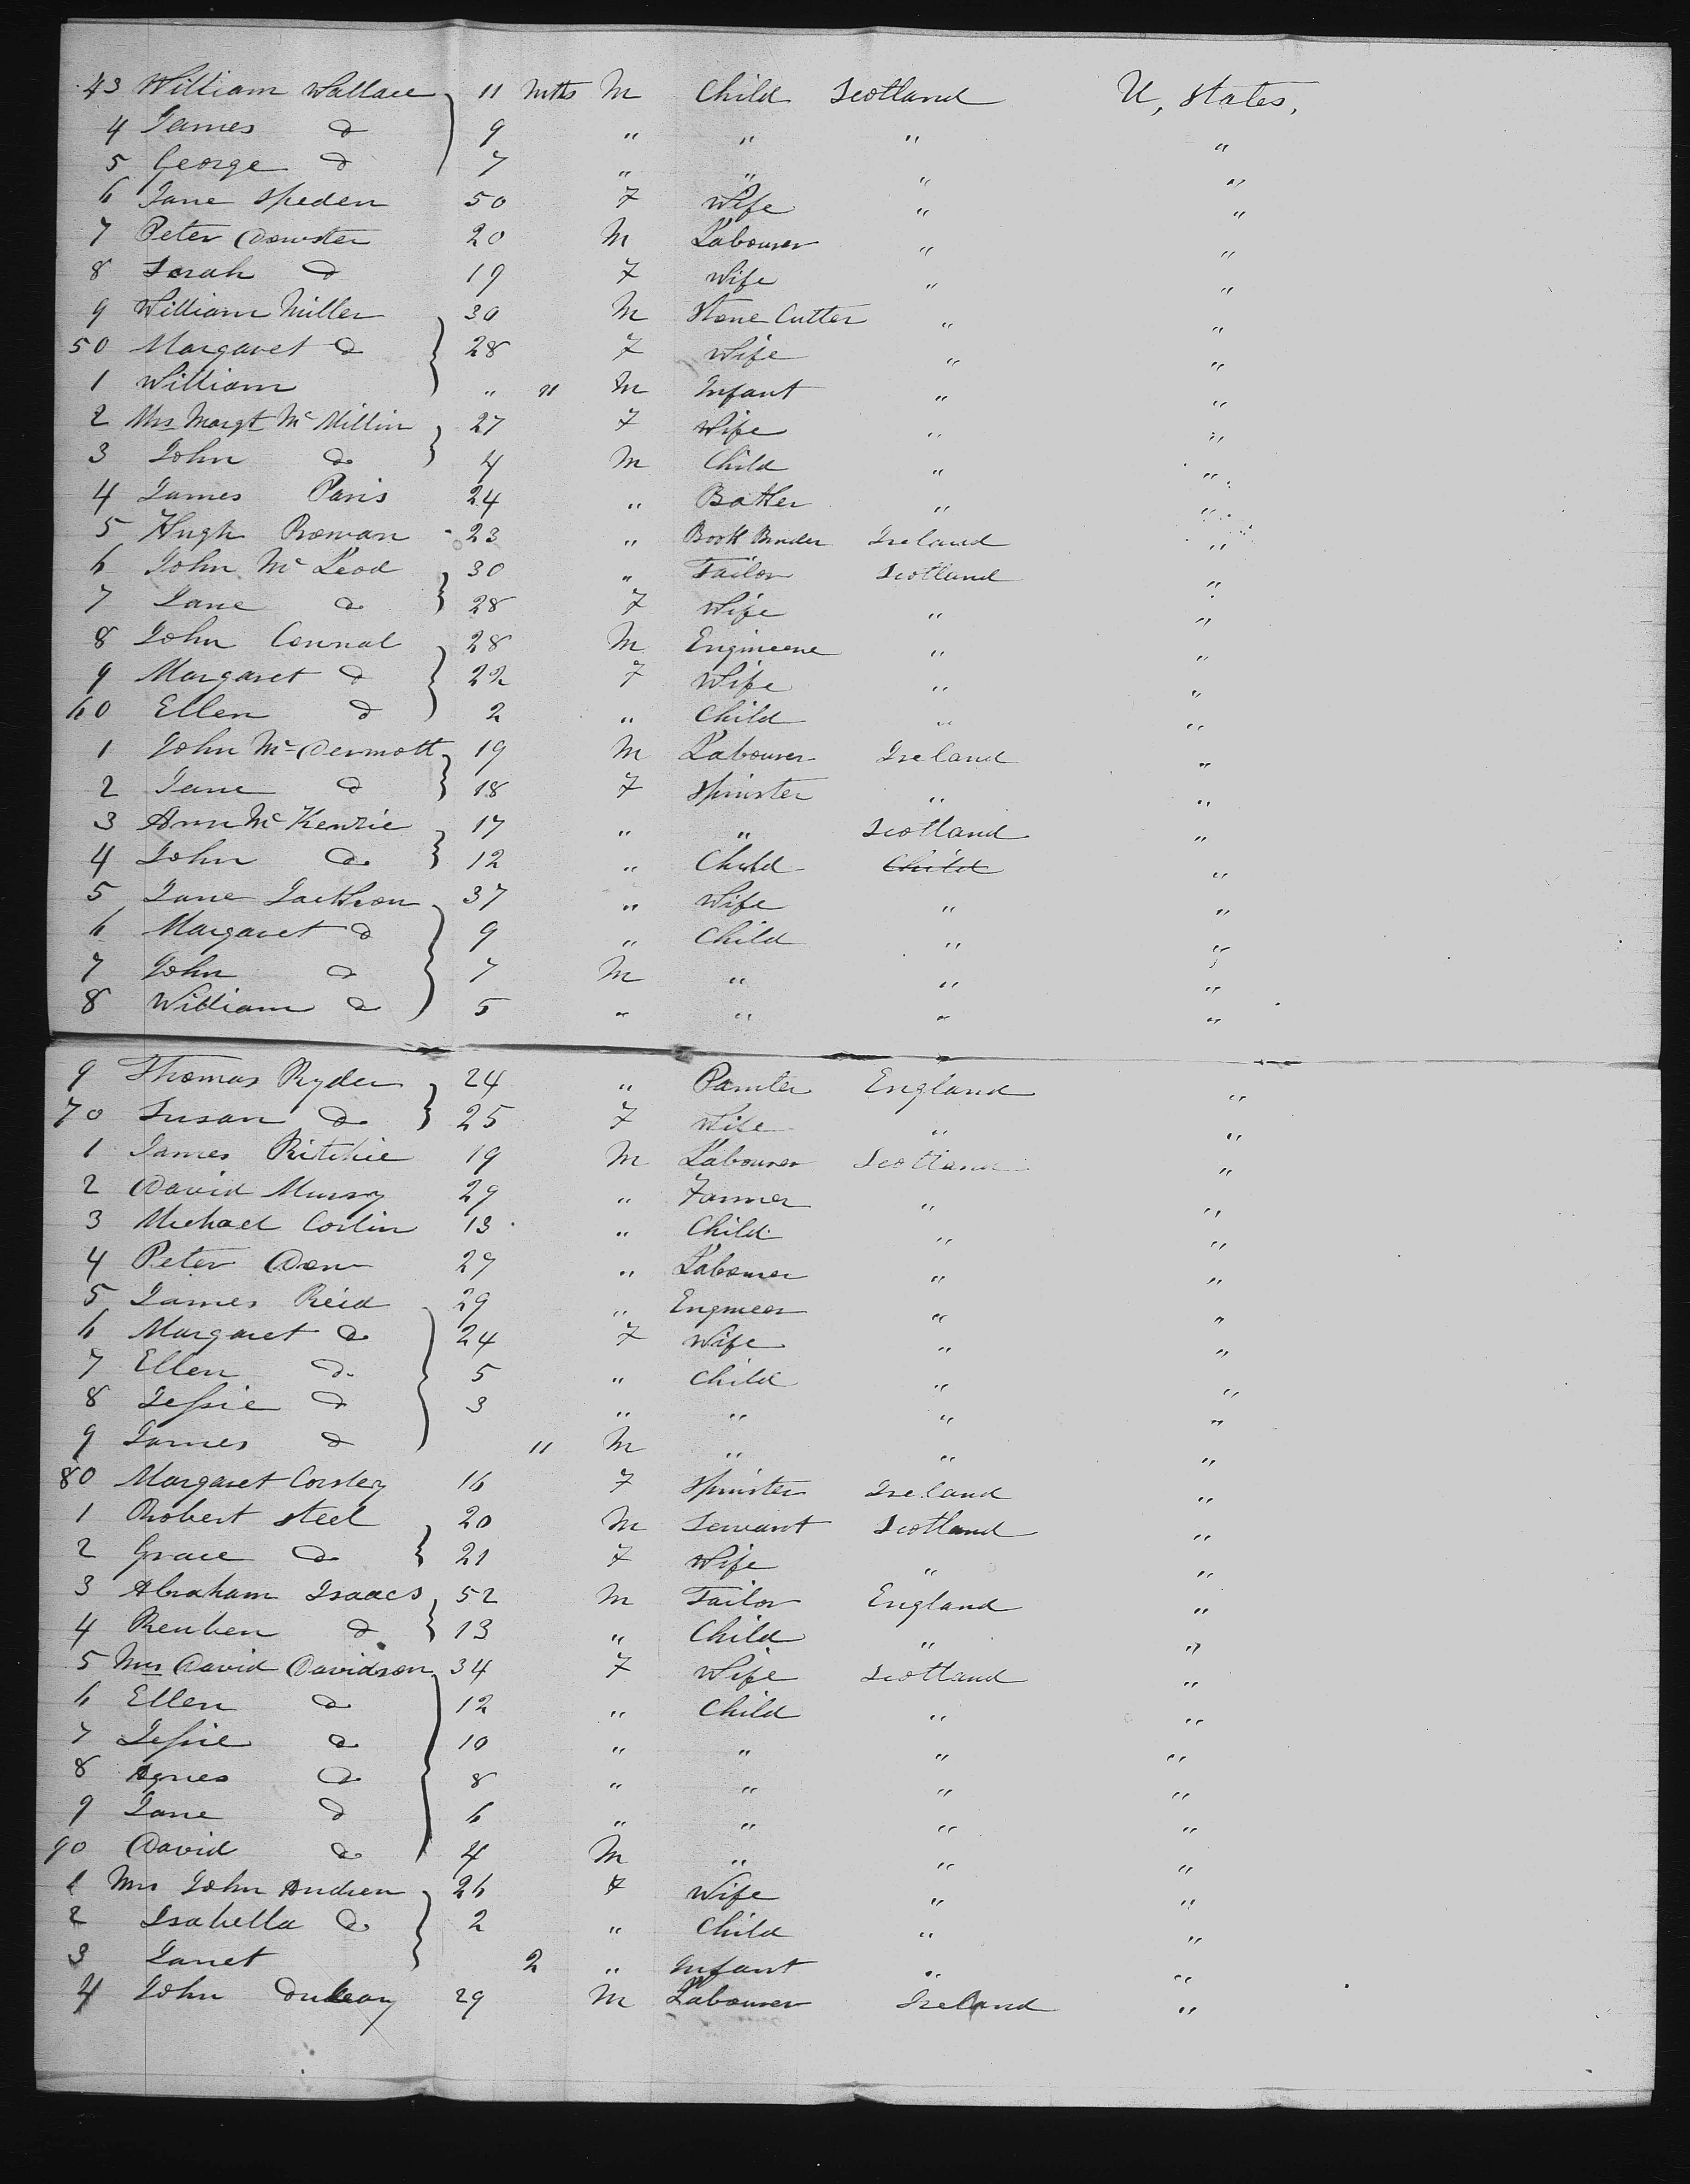 43 William Wallace 11 Mths M Child Scotland U, States,
4 James Do 9 " " " "
5 George Do 7 " " " "
6 Jane Speden 50 F Wife " "
7 Peter Dowster 20 M Labourer " "
8 Sarah Do 19 F Wife " "
9 William Miller 30 M Stone Cutter " "
50 Margaret Do 28 F Wife " "
1 William " 11 M Infant " "
2 Mrs Margt McMillin 27 F Wife " "
3 John Do 4 M Child " "
4 James Paris 24 " " "
5 Hugh Rowan 23 " Book Binder Ireland "
6 John McLeod 30 " Tailor Scotland "
7 Jane Do 28 F Wife " "
8 John Connal 28 M Engineene " "
9 Margaret Do 22 F Wife " "
60 Ellen Do 2 " Child " "
1 John McDermott 19 M Labourer Ireland "
2 Jane Do 18 F Spinster " "
3 Ann McKenzie 17 " " Scotland "
4 John Do 12 " Child Child "
5 Jane Jackson 37 " Wife " "
6 Margaret Do 9 " Child " "
7 John Do 7 M " " "
8 William Do 5 " " " "
9 Thomas Ryder 24 " Painter England "
70 Susan Do 25 F Wife " "
1 James Ritchie 19 M Labourer Scotland "
2 David 29 " Farmer " "
3 Michael 13 " Child " "
4 Peter Dow 27 " Labourer " "
5 James Reid 29 " Engineer " "
6 Margaret Do 24 F Wife " "
7 Ellen Do 5 " Child " "
8 Jessie Do 3 " " " "
9 James Do 11 M " " "
80 Margaret 16 F Spinster Ireland "
1 Robert Steel 20 M Servant Scotland "
2 Grace Do 21 F Wife " "
3 Abraham Isaacs 52 M Tailor England "
4 Reuben Do 13 " Child " "
5 Mrs David Davidson 34 F Wife Scotland "
6 Ellen Do 12 " Child " "
7 Jessie Do 10 " " " "
8 Agnes Do 8 " " " "
9 Jane Do 6 " " " "
90 David Do 4 M " " "
1 Mrs John 26 F Wife " "
2 Isabella Do 2 " Child " "
3 Janet 2 " Infant " "
4 John 29 M Labourer Ireland "